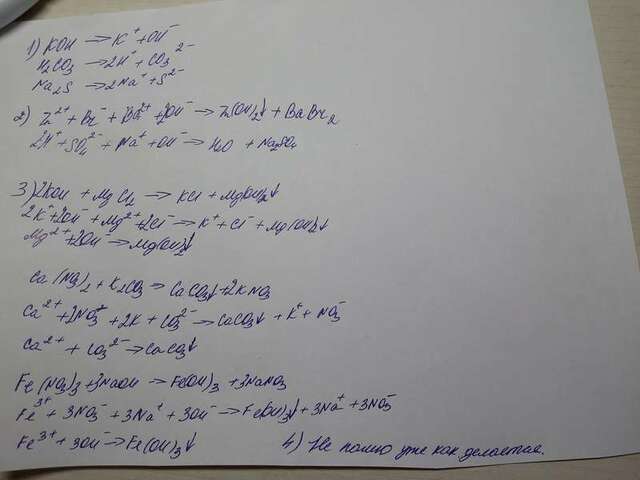 1) KOH → K⁺ + OH⁻
H₂CO₃ → 2H⁺ + CO₃²⁻
Na₂S → 2Na⁺ + S²⁻
2) Zn²⁺ + Br⁻ + Ba²⁺ + 2OH⁻ → Zn(OH)₂↓ + BaBr₂
2H⁺ + SO₄²⁻ + Na⁺ + OH⁻ → H₂O +
3) 2KOH + MgCl₂ → KCl + Mg(OH)₂↓
2K⁺ + 2OH⁻ + Mg²⁺ + 2Cl⁻ → K⁺ + Cl⁻ + Mg(OH)₂↓
Mg²⁺ + 2OH⁻ → Mg(OH)₂↓
Ca(NO₃)₂ + K₂CO₃ → CaCO₃↓ + 2KNO₃
Ca²⁺ + 2NO₃⁻ + 2K⁺ + CO₃²⁻ → CaCO₃↓ + K⁺ + NO₃⁻
Ca²⁺ + CO₃²⁻ → CaCO₃↓
Fe(NO₃)₃ + 3NaOH → Fe(OH)₃ + 3NaNO₃
Fe³⁺ + 3NO₃⁻ + 3Na⁺ + 3OH⁻ → Fe(OH)₃↓ + 3Na⁺ + 3NO₃⁻
Fe³⁺ + 3OH⁻ → Fe(OH)₃↓
4) Не помню уже как делается.